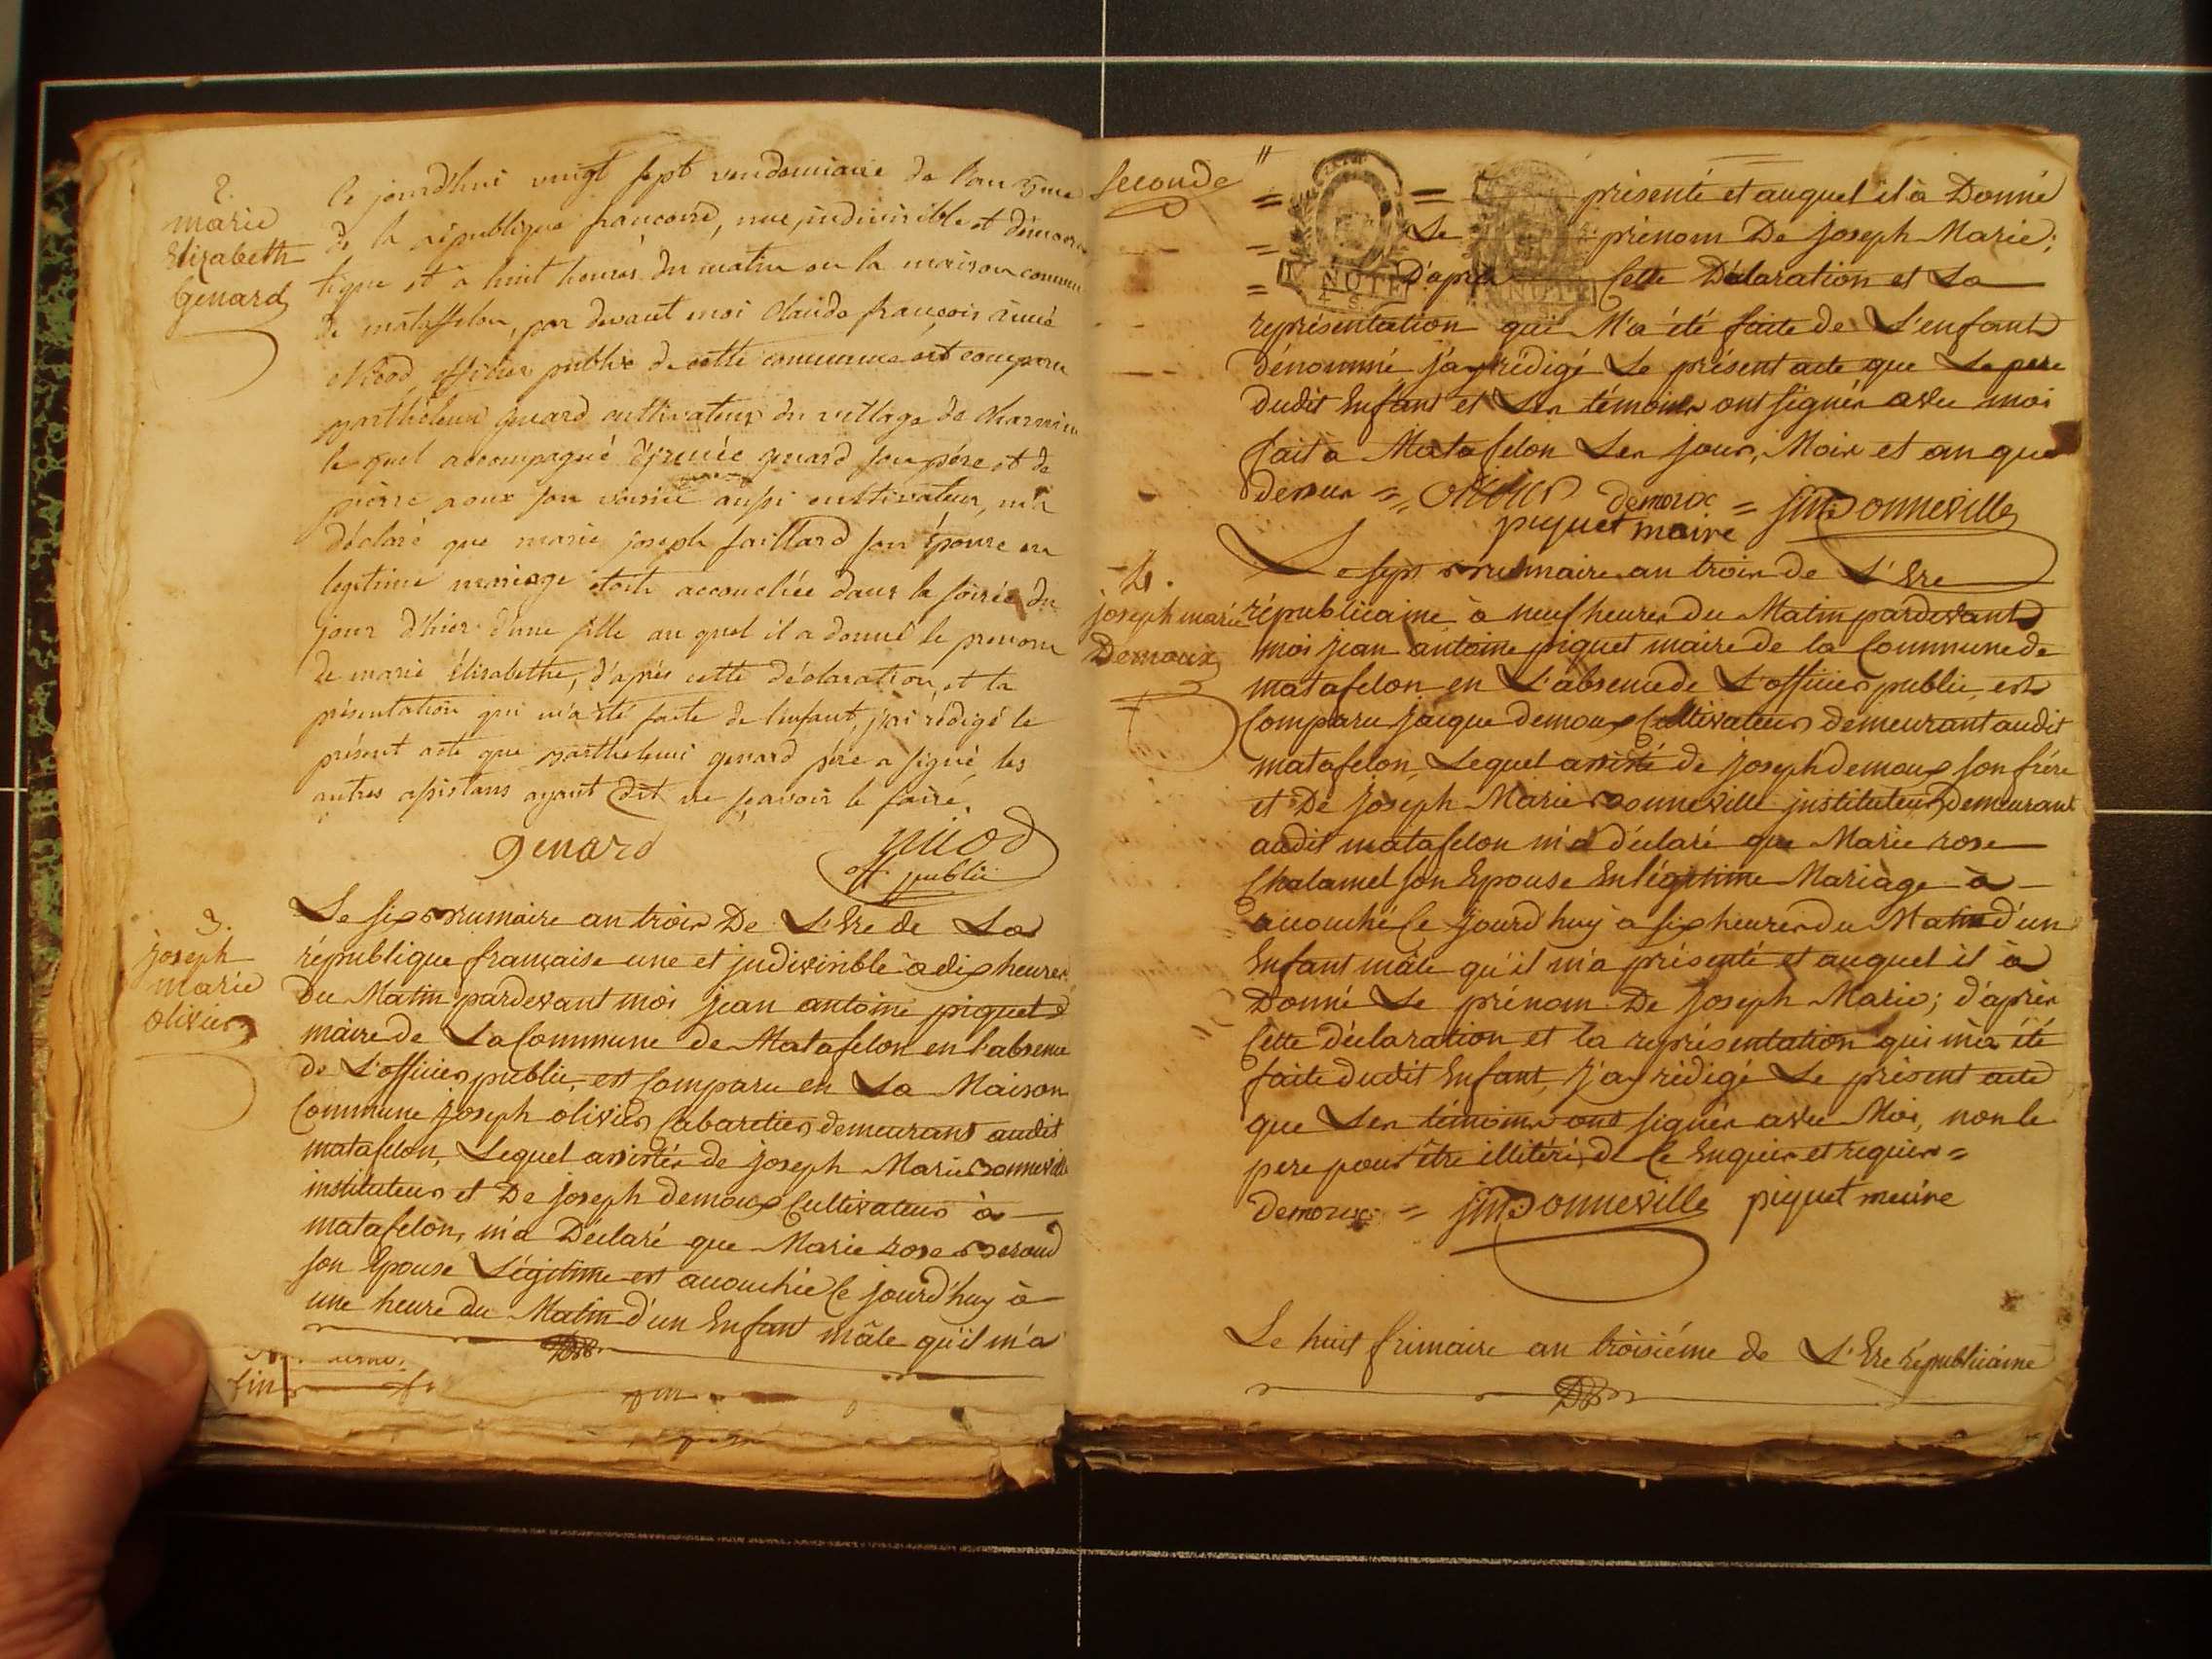 2.
marie
Elizabeth
Genard
Ce jourd'hui vingt sept vendemiaire de l'an 3eme
de la république francoise, une, indivisible et démocra
tique et à huit heures du matin en la maison commune
de mataffelon, par devant moi Claude françois
Nicod officier public de cette commune est comparu
Barthelemi genard cultivateur du village de
le quel accompagné genard son père et de
pierre roux son voisin aussi cultivateur, m'a
déclaré que marie joseph faillard son épouse en
legitime mariage étoit accouchée dans la soirée du
jour d'hier d'une fille au quel il a donné le prenom
de marie élisabethe, d'après cette déclaration et la
présentation qui m'a été faite de l'enfant, j'ai rédigé le
présent acte que Barthelemi genard père a signé, les
autres assistans ayant dit ne sçavoir le faire.
genard nicod
off. public
3.
joseph
marie
olivier
Le six Brumaire an trois De L'Ere de La
république française une et indivisible à dix heures
Du Matin pardevant moi jean antoine piquet
maire de La Commune de Matafelon en l'absence
de L'officier public, est Comparu en La Maison
Commune joseph olivier Cabaretier demeurant audit
matafelon, Lequel assistés de joseph Marie Bonneville
instituteur et De joseph demoux Cultivateur à
matafelon, m'a Déclaré que Marie rose Beroud
son Epouse Légitime est accouchée Ce jourd'huy à
une heure du Matin d'un Enfant mâle qu'il m'a
fin
Seconde
présenté et auquel il à Donné
Le prénom De joseph Marie;
D'après Cette Déclaration et La
représentation qui M'a été faite de L'enfant
dénommé j'ay rédigé Le présent acte que Le pere
dudit Enfant et Les témoins ont signés avec moi
fait à Matafelon Les jour, Mois et an que
dessus = olivier demoux = jmBonneville
piquet maire
4.
joseph marie
Demoux
Le sept Brumaire an trois de L'Ere
républicaine à neuf heures du Matin pardevant
moi jean antoine piquet maire de la Commune de
matafelon en L'absence de L'officier public, est
Comparu jacque demoux Cultivateur demeurant audit
matafelon, Lequel assisté de joseph demoux son frére
et De joseph Marie Bonneville instituteur demeurant
audit matafelon m'a déclaré que Marie rose
Chalamel son Epouse En légitime Mariage à
accouché Ce jourd'huy à six heures du Matin d'un
Enfant mâle qu'il m'a présenté et auquel il à
Donné Le prénom De joseph Marie; d'après
Cette déclaration et la représentation qui m'a été
faite dudit Enfant, j'ay rédigé Le présent acte
que Les témoins ont signés avec Moi, non le
pere pour être illitéré de Ce Enquis et requis =
demoux = jmBonneville piquet maire
Le huit frimaire an troisiéme de L'Ere républicaine